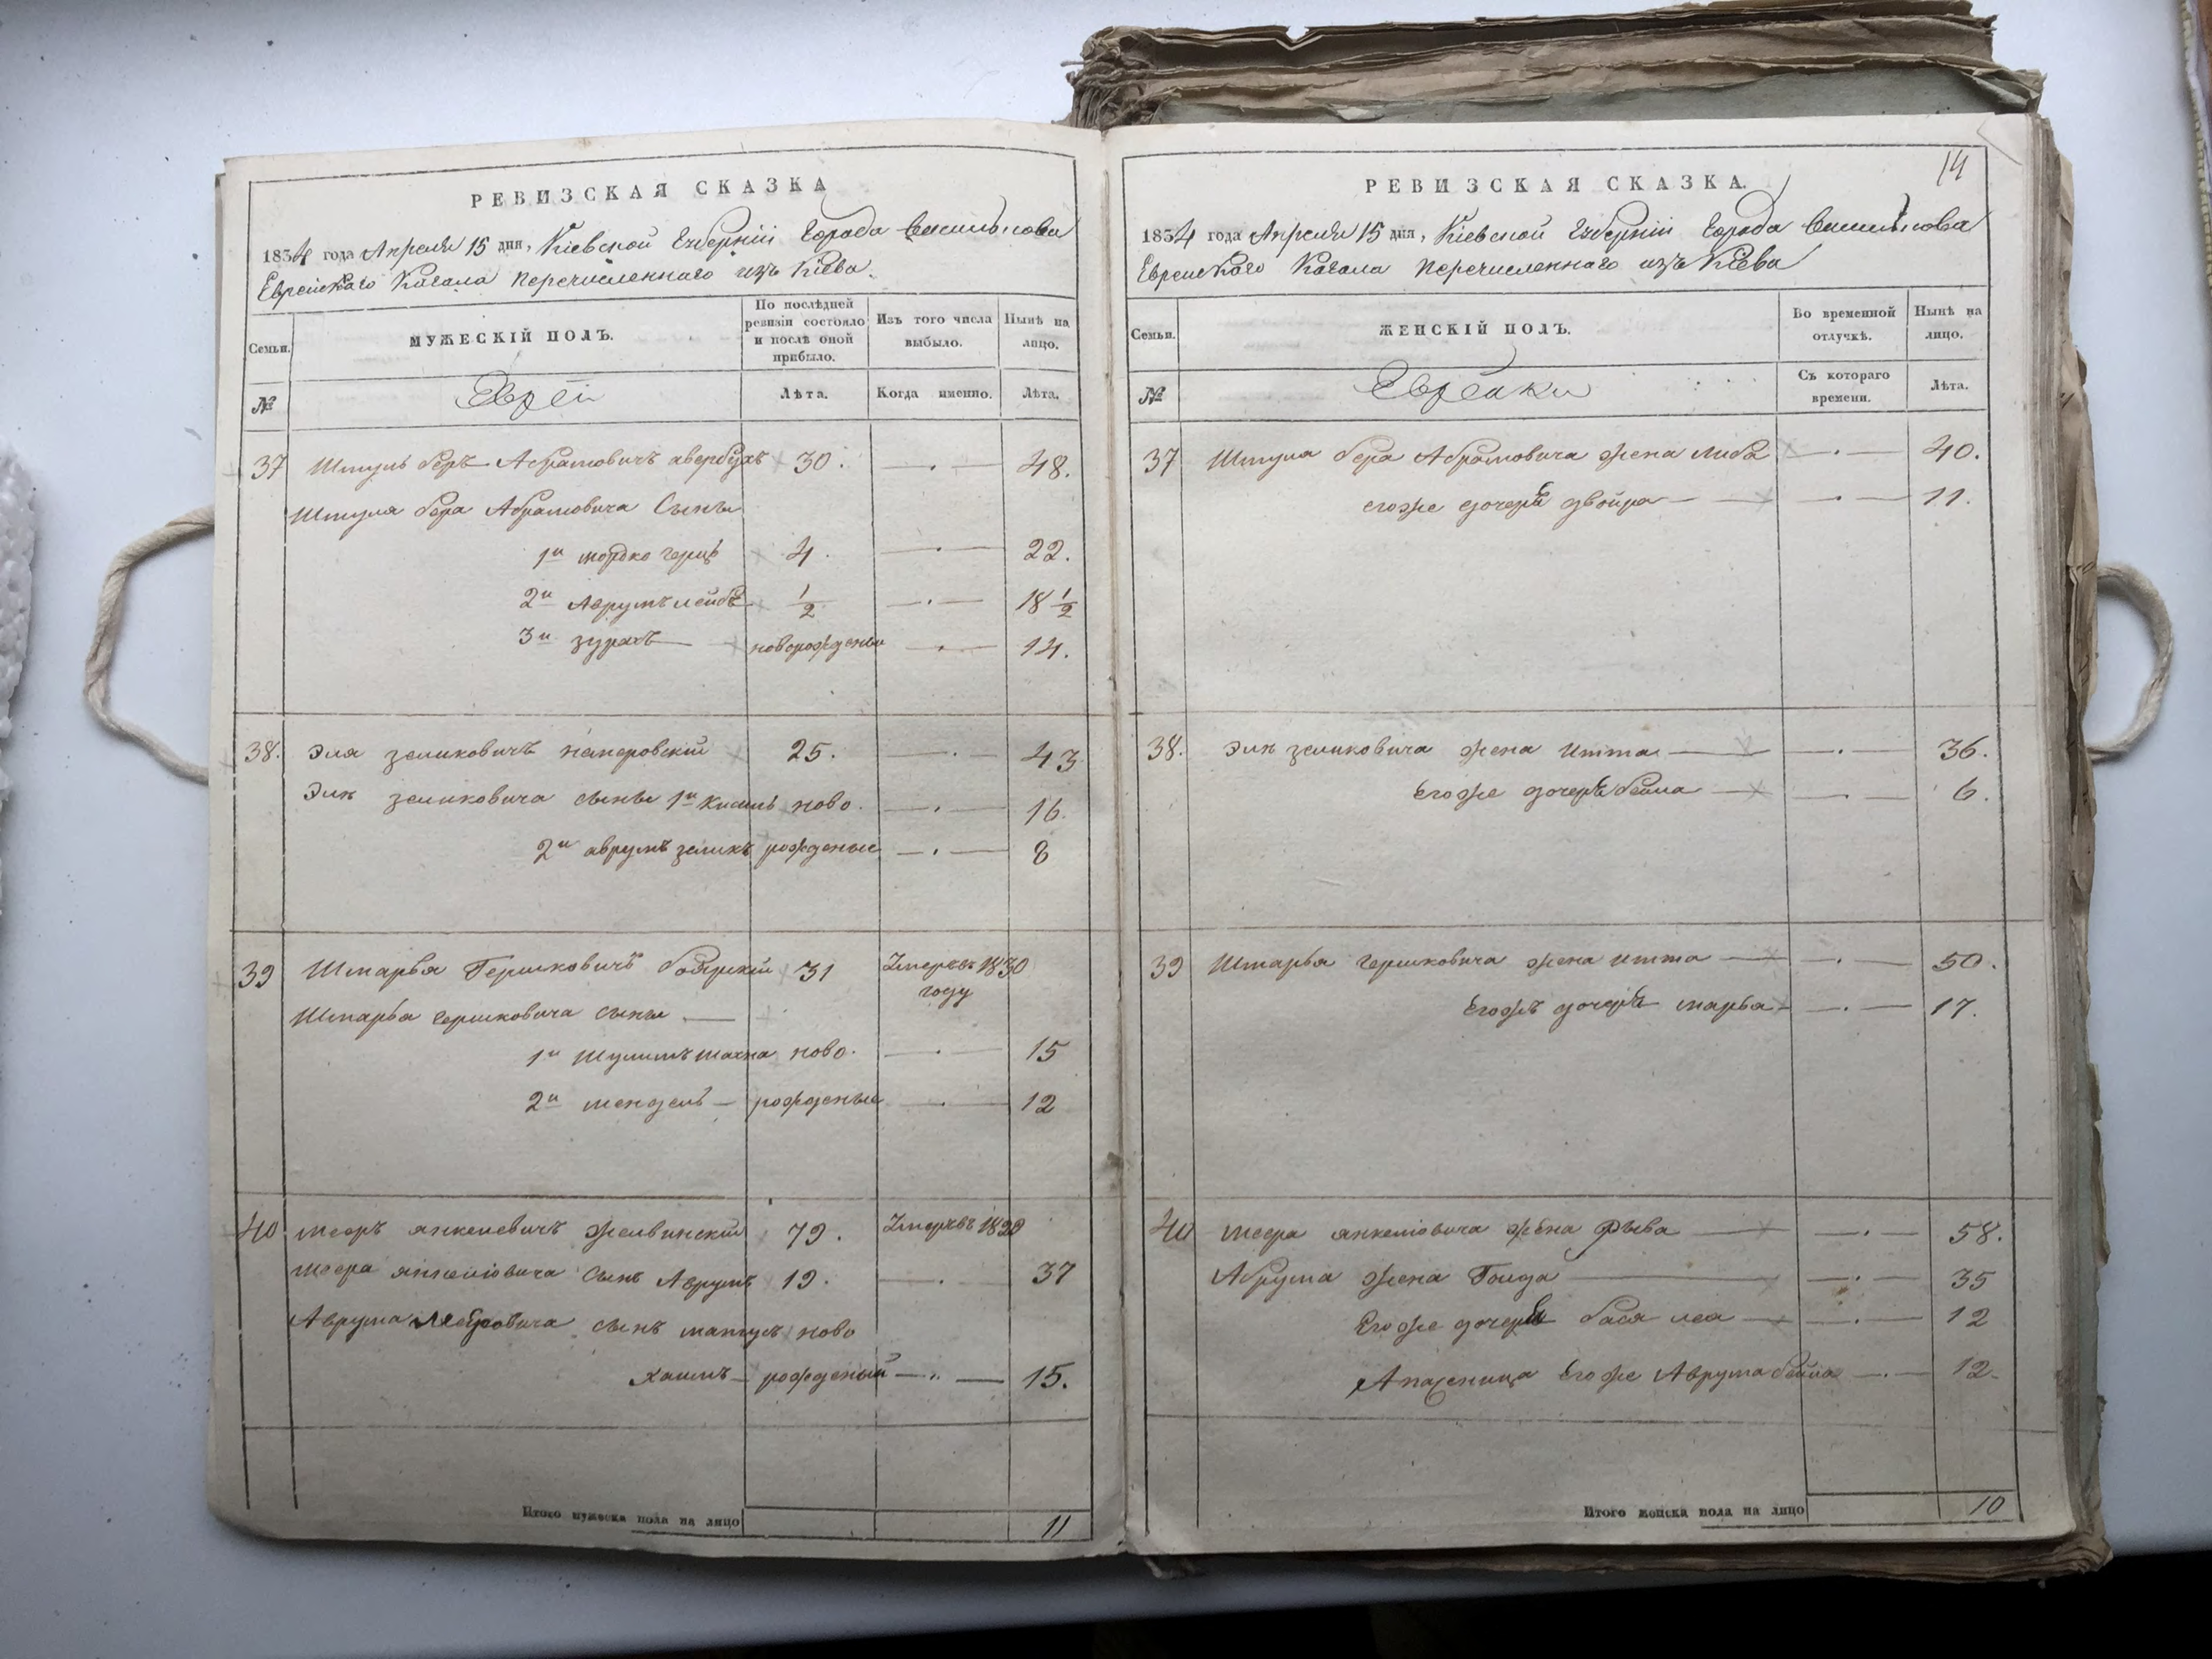 РЕВИЗСКАЯ СКАЗКА
1834 года Апреля 15 дня, Кіевской Губерніи Города Василькова
Еврейскаго Кагала перечисленнаго изъ Кіева.
Семьи.
МУЖЕСКІЙ ПОЛЪ.
По послѣдней ревизіи состояло и послѣ оной прибыло.
Изъ того числа выбыло.
Нынѣ на лицо.
№
Евреи
Лѣта.
Когда именно.
Лѣта.
37 Шмуль беръ Абрамовичъ авербухъ 30. 48.
Шмуля бера Абрамовича Сыны
1й мордко герцъ 4. 22.
2й Аврумъ лейбъ 1/2 18 1/2
3й новорожденый 14.
38. Эля зеликовичъ 25. 43
Эли зеликовича сыны 1й кисиль ново. 16.
2й аврумъ зеликъ рожденые 8
39 Шмарья Гершковичъ боярскій 31 Умеръ въ 1830 году
Шмарья гершковича сыны
1й Шулимъ шахна ново. 15
2й мендель рожденые 12
40 мееръ янкелевичъ 79. Умеръ въ 1820
меера янкеліовича сынъ Аврумъ 19. 37
Аврума Меeровича сынъ ново
хаимъ рожденый 15.
Итого мужеска пола на лицо 11
14
РЕВИЗСКАЯ СКАЗКА.
1834 года Апреля 15 дня, Кіевской Губерніи Города Василькова
Еврейскаго Кагала перечисленнаго изъ Кіева
Семьи.
ЖЕНСКІЙ ПОЛЪ.
Во временной отлучкѣ.
Нынѣ на лицо.
№
Еврейки
Съ котораго времени.
Лѣта.
37 Шмуля бера Абрамовича жена Либа 40.
егоже дочерь двойра 11.
38. Эли зеликовича жена итта 36.
Егоже дочерь бейла 6.
39 Шмарья гершковича жена итта 50.
Егожъ дочерь марья 17.
40 меера янкеліовича жена Рыва 58.
Аврума жена Голда 35
Егоже дочерь бася леа 12
Егоже Аврума бейла 12.
Итого женска пола на лицо 10